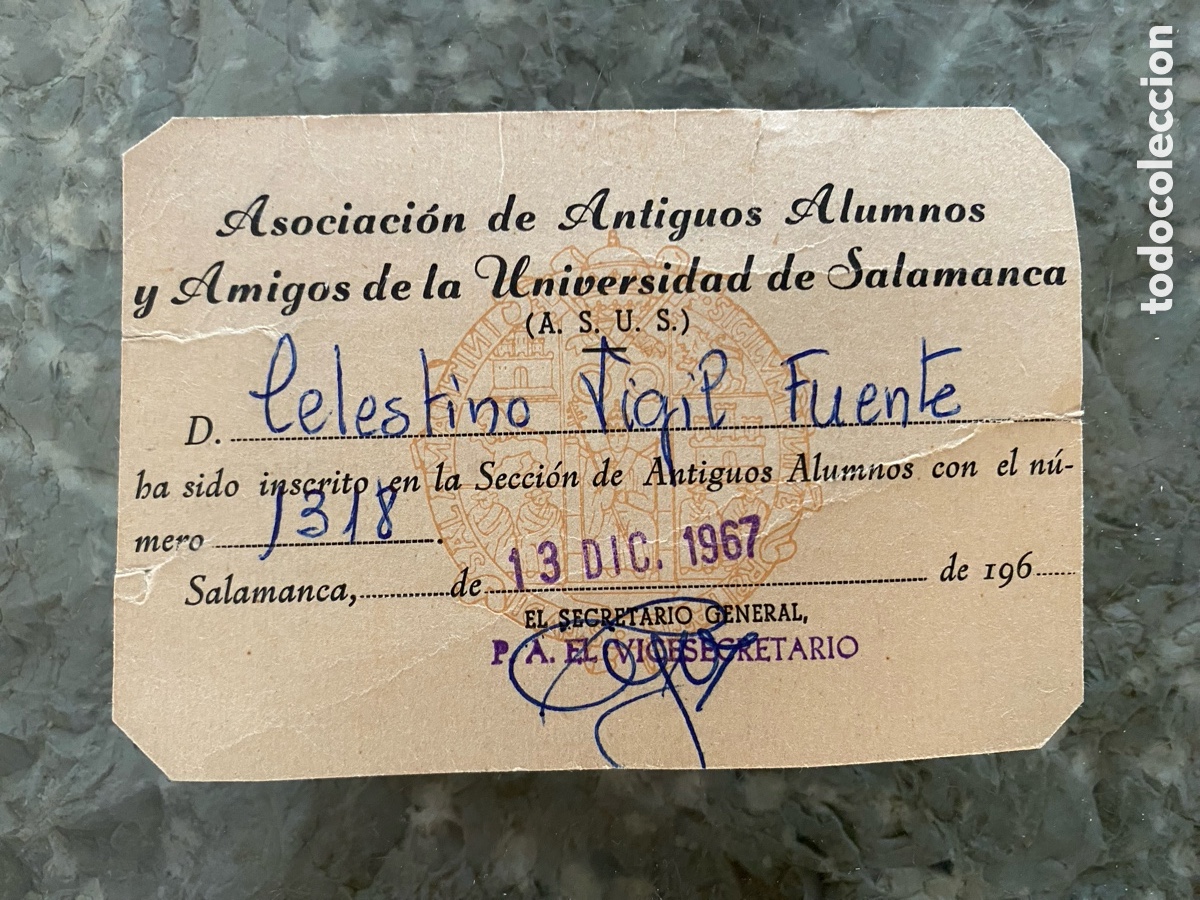 Asociación de Antiguos Alumnos
y Amigos de la Universidad de Salamanca
(A. S. U. S.)
D. Celestino Vigil Fuente
ha sido inscrito en la Sección de Antiguos Alumnos con el nú-
mero 1318.
Salamanca, de 13 DIC. 1967 de 196
EL SECRETARIO GENERAL,
P. A. EL VICESECRETARIO
todocoleccion